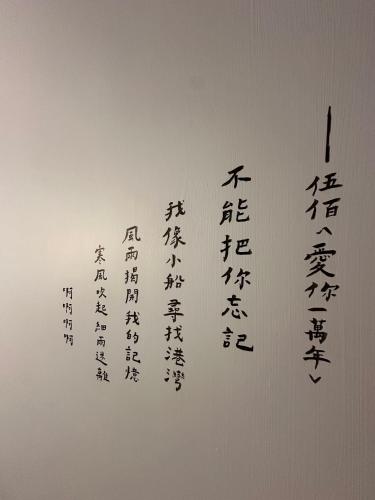 啊啊啊啊
寒風吹起細雨迷離
風雨揭開我的記憶
我像小船尋找港灣
不能把你忘記
——伍佰〈愛你一萬年〉